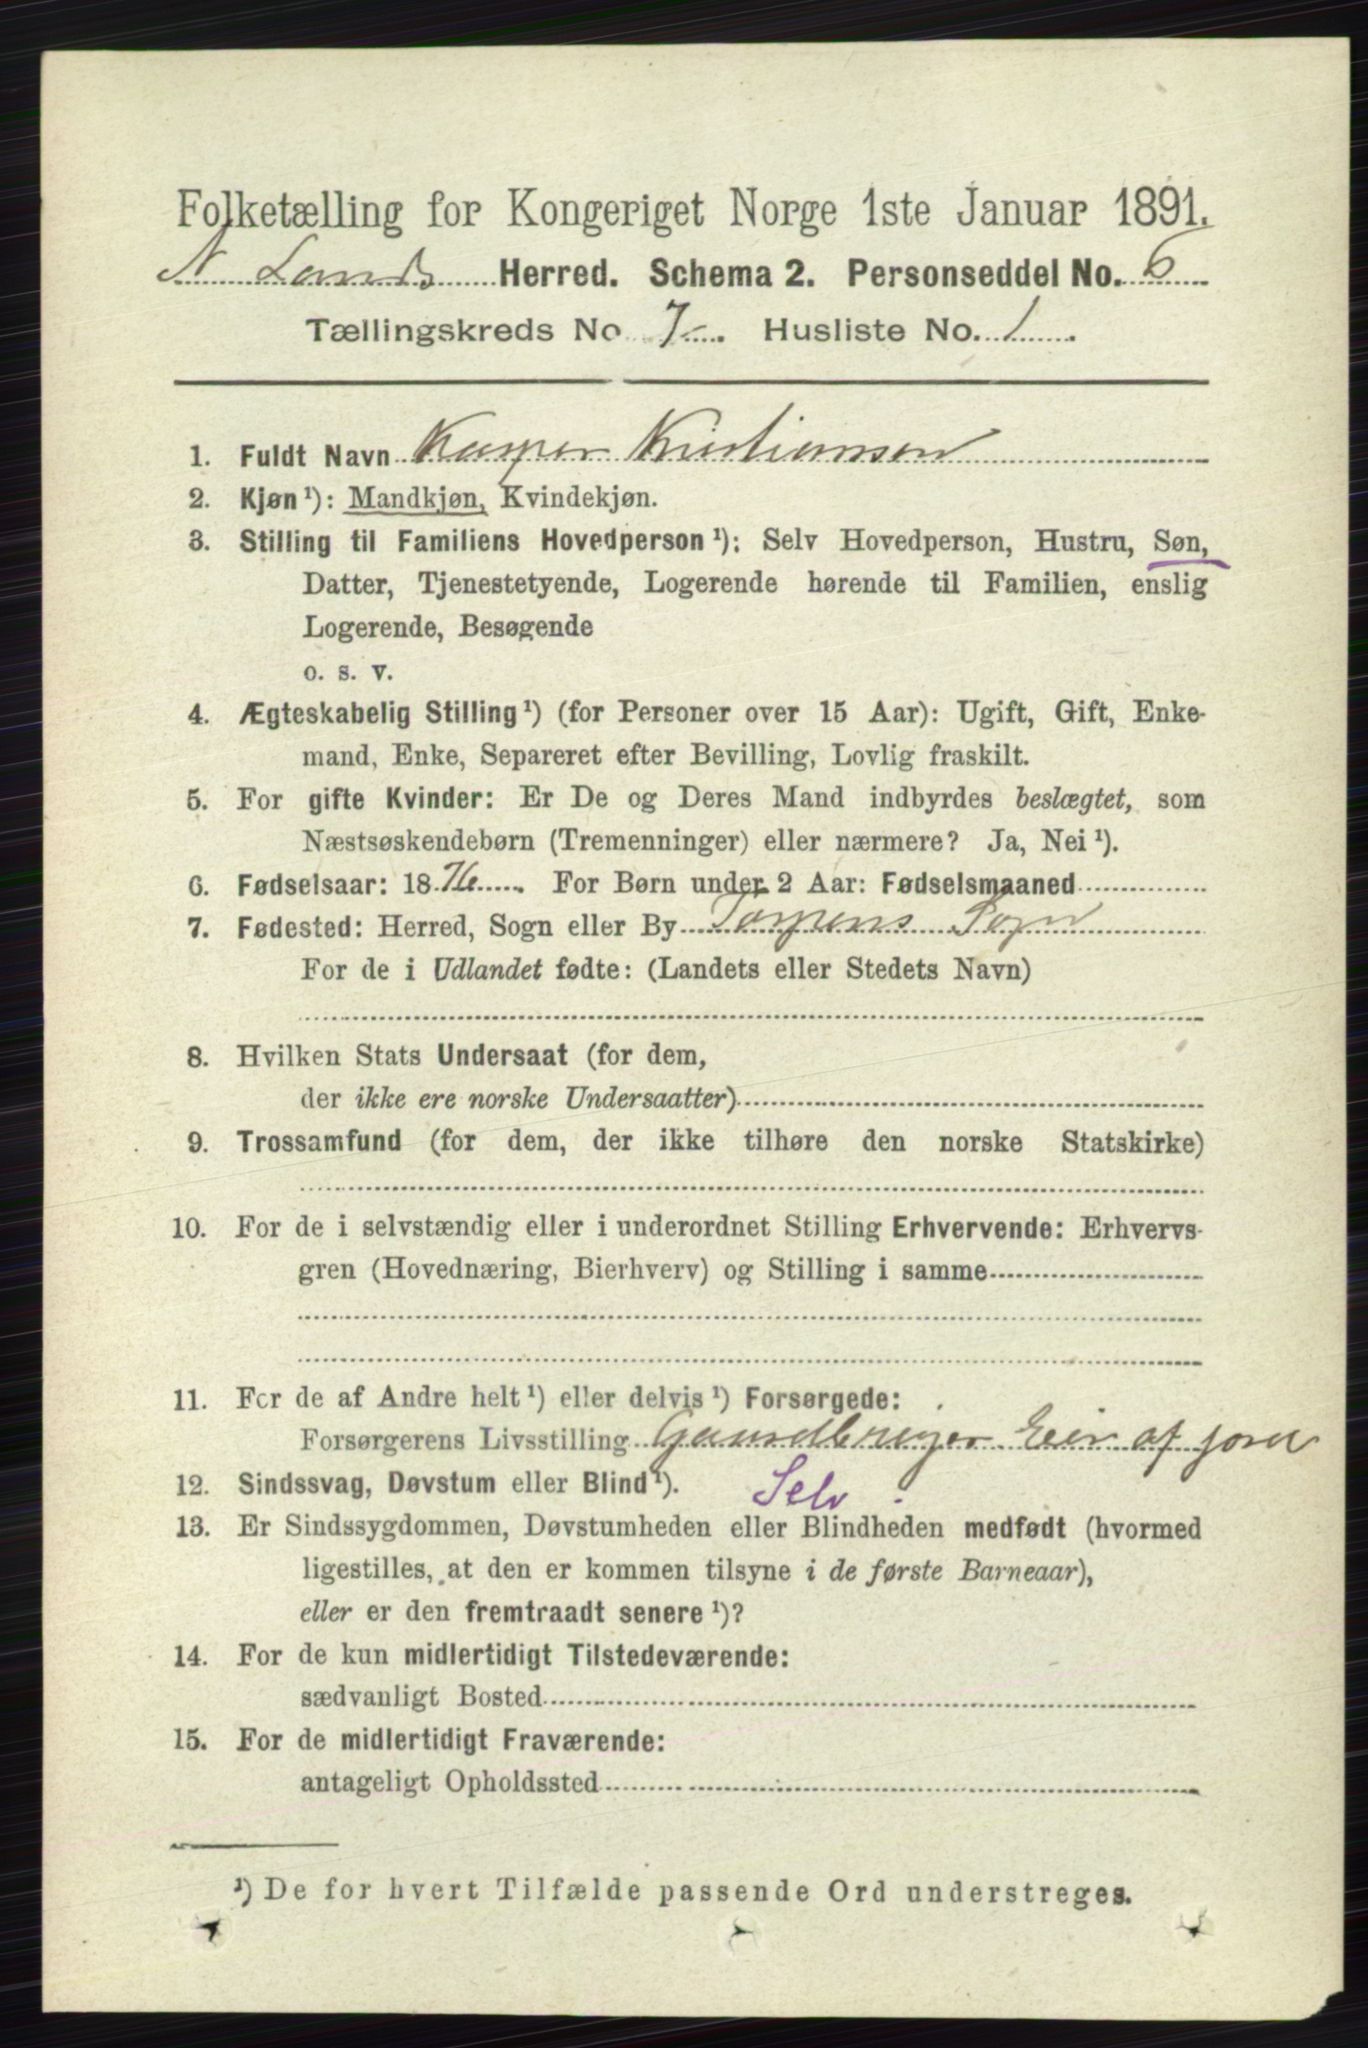 Folketælling for Kongeriget Norge 1ste Januar 1891.
N. Lands Herred. Schema 2. Personseddel No. 6
Tællingskreds No. 7 Husliste No. 1
1. Fuldt Navn Kasper Kristiansen
2. Kjøn¹): Mandkjøn, Kvindekjøn.
3. Stilling til Familiens Hovedperson¹): Selv Hovedperson, Hustru, Søn,
Datter, Tjenestetyende, Logerende hørende til Familien, enslig
Logerende, Besøgende
o. s. v.
4. Ægteskabelig Stilling¹) (for Personer over 15 Aar): Ugift, Gift, Enke-
mand, Enke, Separeret efter Bevilling, Lovlig fraskilt.
5. For gifte Kvinder: Er De og Deres Mand indbyrdes beslægtet, som
Næstsøskendebørn (Tremenninger) eller nærmere? Ja, Nei¹).
6. Fødselsaar: 1876 For Børn under 2 Aar: Fødselsmaaned
7. Fødested: Herred, Sogn eller By Torpens Sogn
For de i Udlandet fødte: (Landets eller Stedets Navn)
8. Hvilken Stats Undersaat (for dem,
der ikke ere norske Undersaatter)
9. Trossamfund (for dem, der ikke tilhøre den norske Statskirke)
10. For de i selvstændig eller i underordnet Stilling Erhvervende: Erhvervs-
gren (Hovednæring, Bierhverv) og Stilling i samme
11. For de af Andre helt¹) eller delvis¹) Forsørgede:
Forsørgerens Livsstilling Gaardbruger Eier af jord
12. Sindssvag, Døvstum eller Blind¹). Selv
13. Er Sindssygdommen, Døvstumheden eller Blindheden medfødt (hvormed
ligestilles, at den er kommen tilsyne i de første Barneaar),
eller er den fremtraadt senere¹)?
14. For de kun midlertidigt Tilstedeværende:
sædvanligt Bosted
15. For de midlertidigt Fraværende:
antageligt Opholdssted
¹) De for hvert Tilfælde passende Ord understreges.